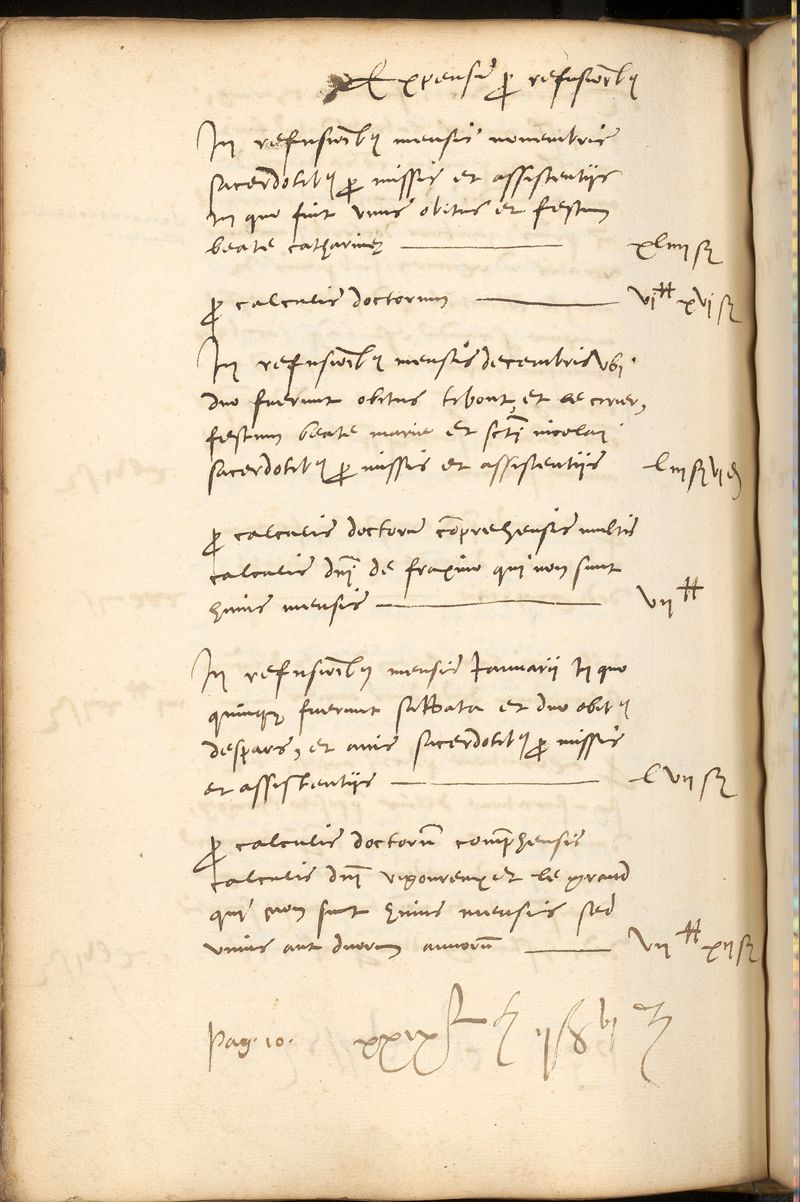 Expense pro refusionibus
In refusionibus mensis novembris
sacerdotibus pro missis et assistentiis
In quo fuit unus obitus et festum
beate catharine xliiii s
pro calculis doctorum vi lt xvi s
In refusionibus mensis decembris ubi
duo fuerunt obitus tibout, et le cirier,
festum beate marie et scti nicolai
sacerdotibus pro missis et assistentiis liii s vi d
pro calculis doctorum comprehensis multis
calculis dni de fraxino qui non sunt
huius mensis vii lt
In refusionibus mensis Januarii In quo
quinque fuerunt sabbata et duo obitus
despars, et avis sacerdotibus pro missis
et assistentiis lvii s
pro calculis doctorum comprehensis
calculis dni vigoureux et le grand
qui non sunt huius mensis sed
unius aut duorum annorum vii lt xii s
Pag. 10. xxix